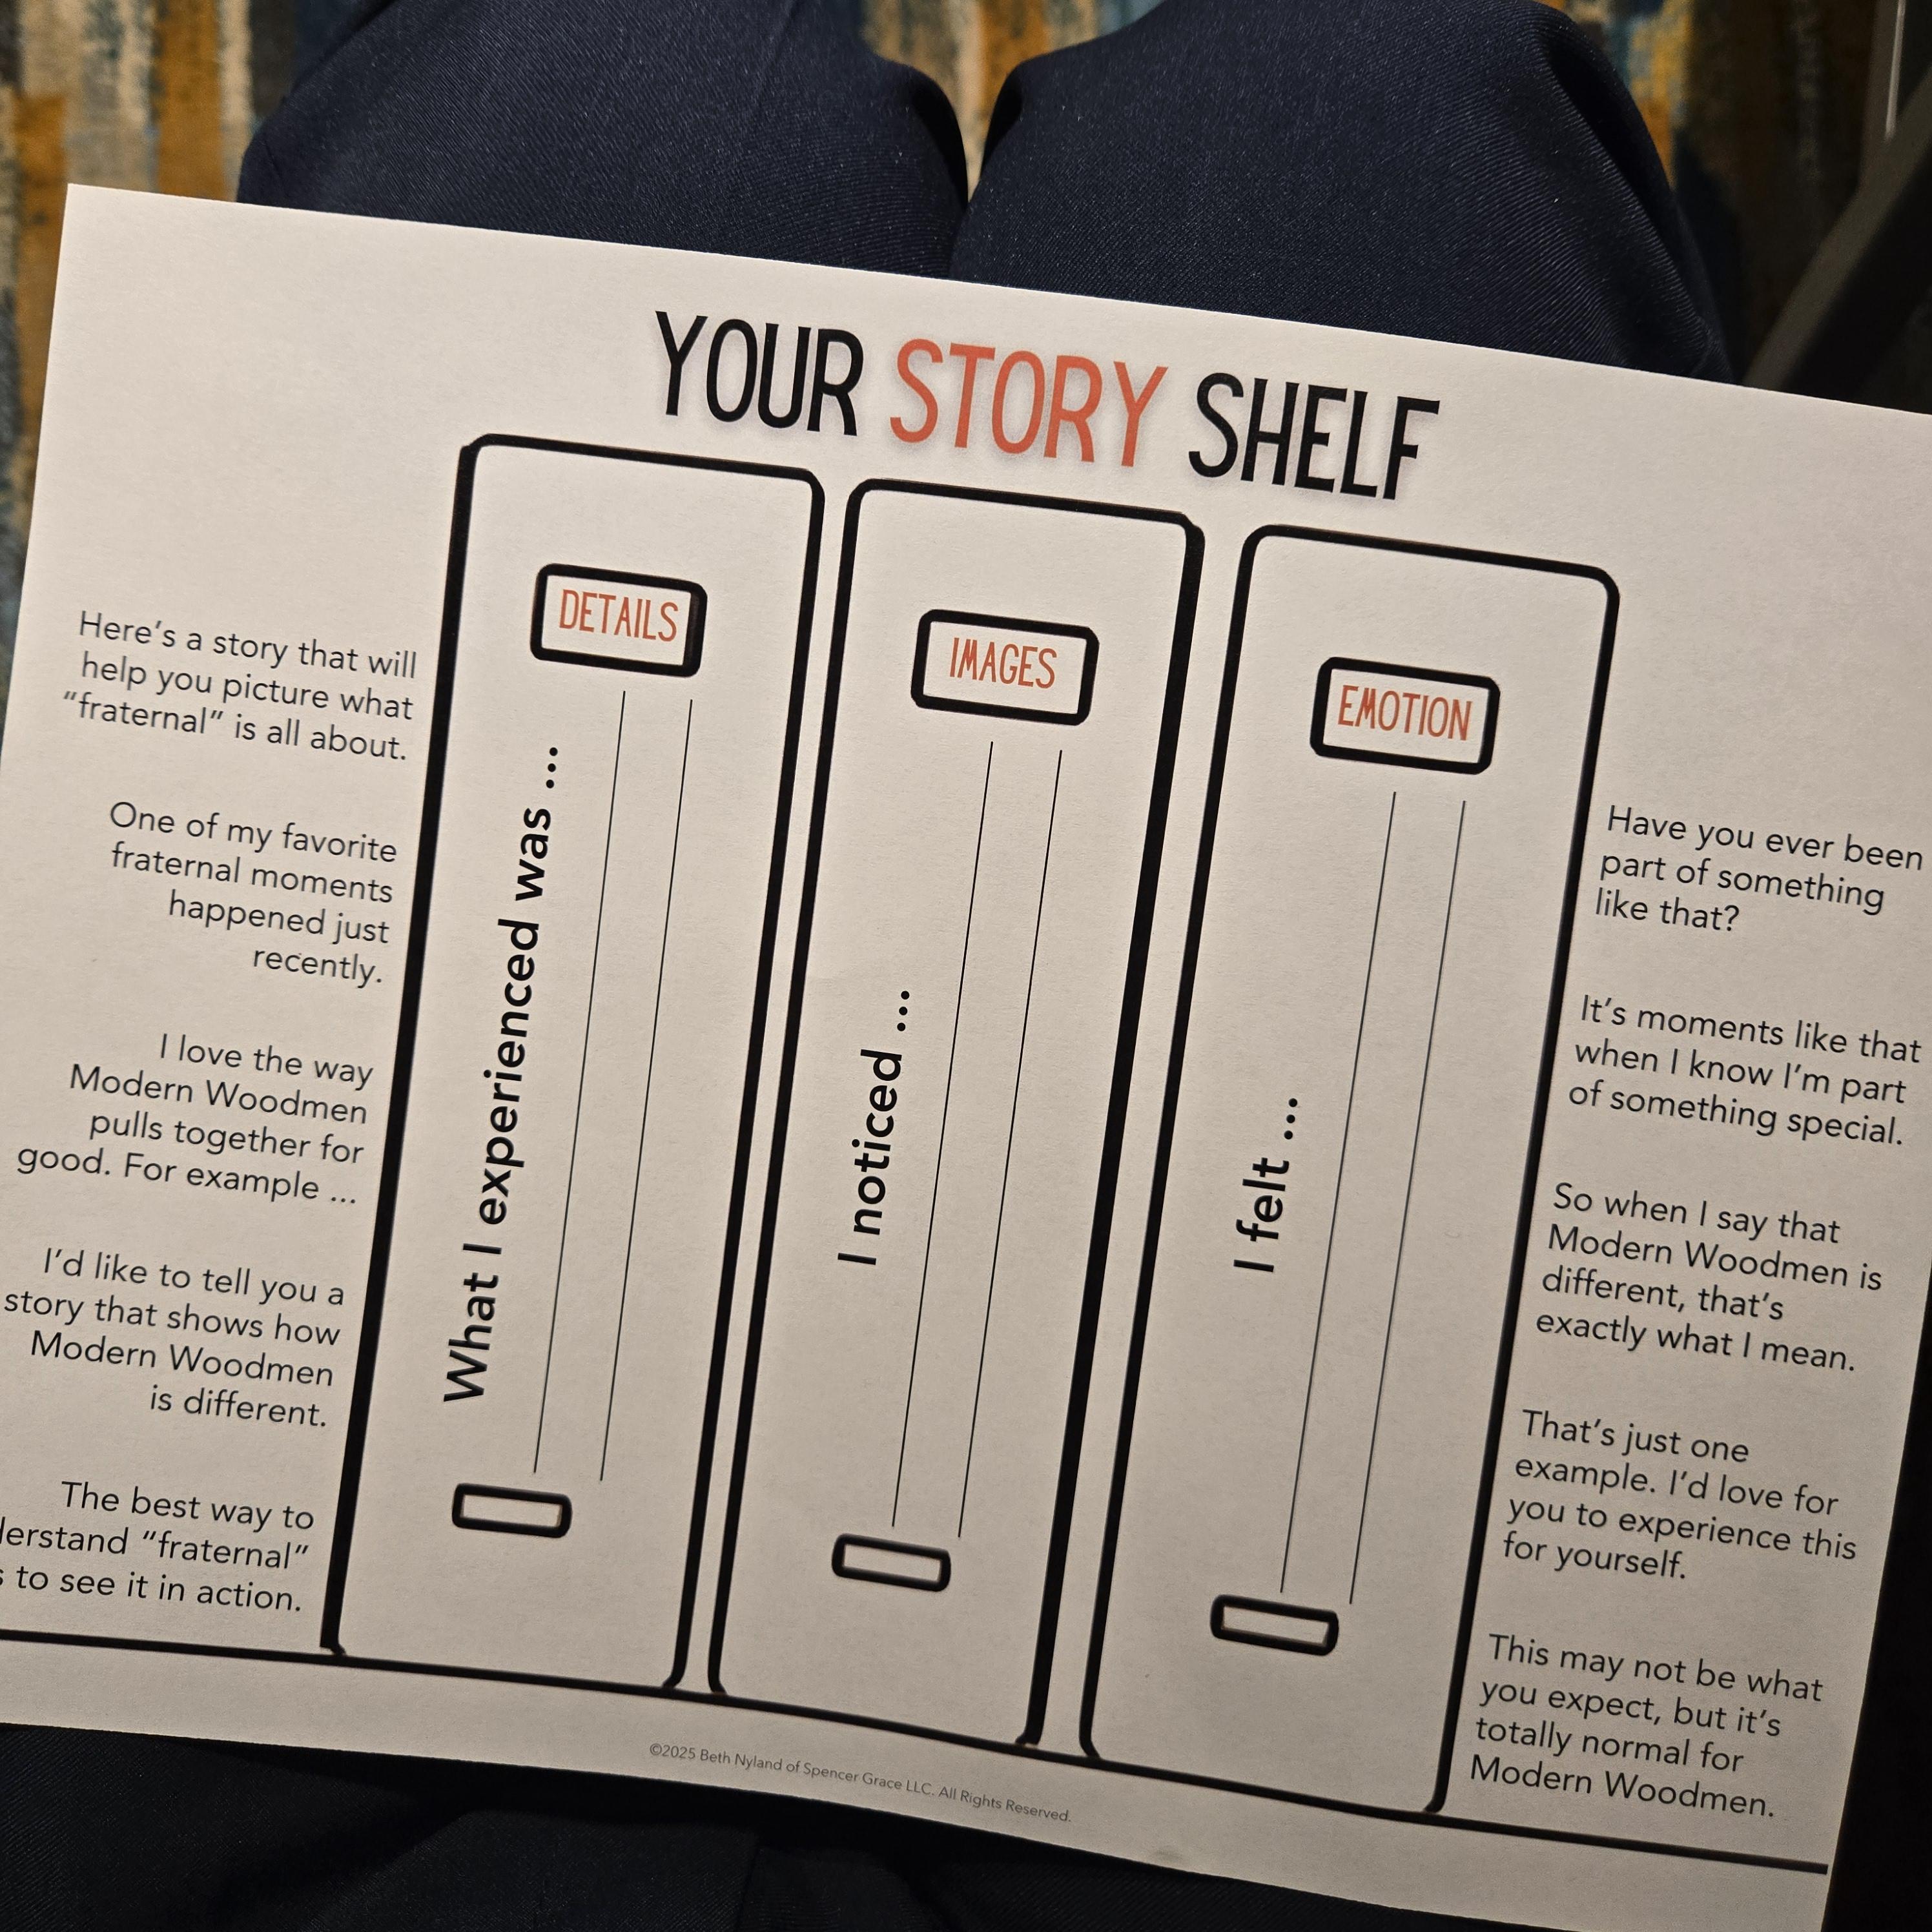 YOUR STORY SHELF
Here's a story that will
help you picture what
"fraternal" is all about.
One of my favorite
fraternal moments
happened just
recently.
I love the way
Modern Woodmen
pulls together for
good. For example ...
I'd like to tell you a
story that shows how
Modern Woodmen
is different.
The best way to
"fraternal"
to see it in action.
DETAILS
What I experienced was ...
IMAGES
I noticed ...
EMOTION
I felt ...
Have you ever been
part of something
like that?
It's moments like that
when I know I'm part
of something special.
So when I say that
Modern Woodmen is
different, that's
exactly what I mean.
That's just one
example. I'd love for
you to experience this
for yourself.
This may not be what
you expect, but it's
totally normal for
Modern Woodmen.
©2025 Beth Nyland of Spencer Grace LLC. All Rights Reserved.